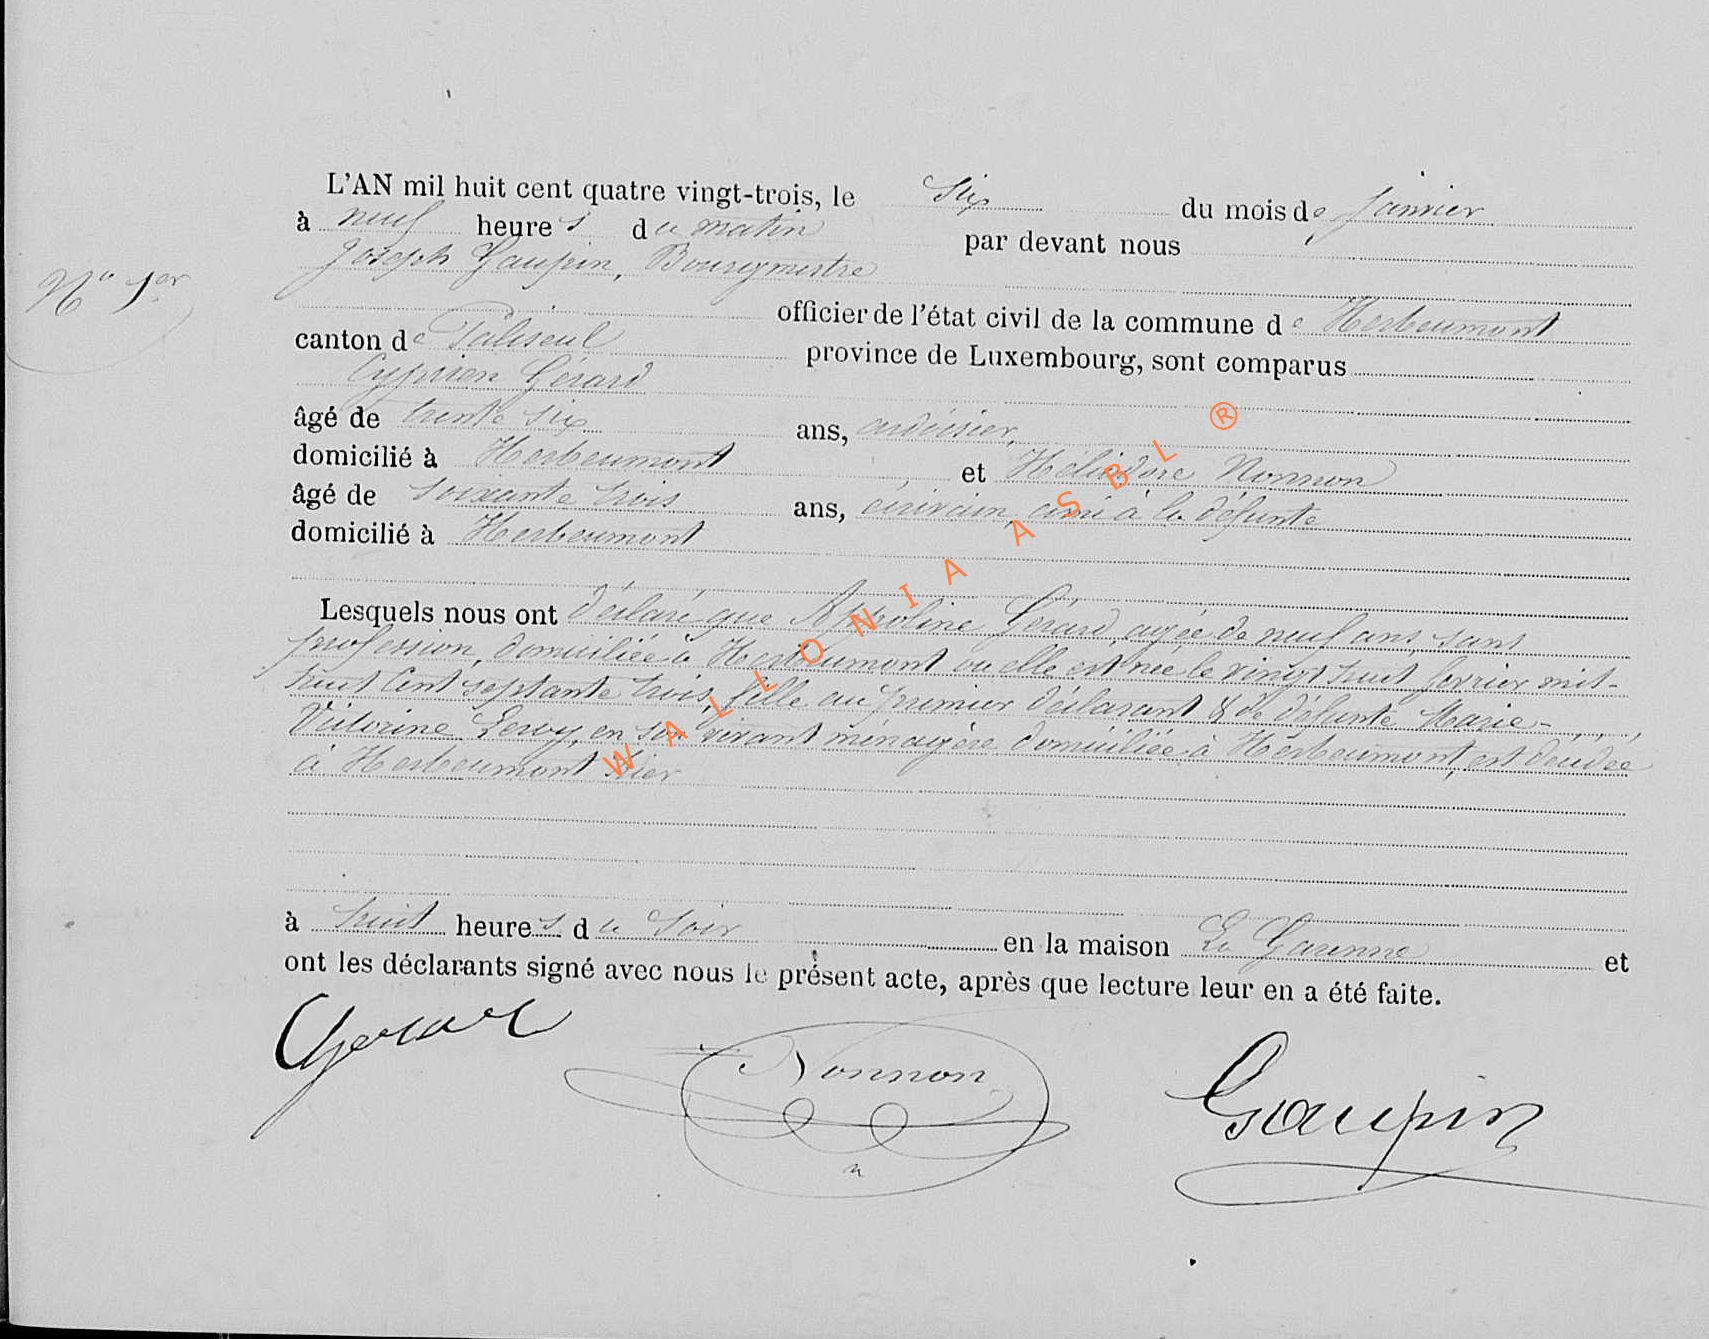 L'AN mil huit cent quatre vingt-trois, le six du mois de Janvier
à neuf heures du matin par devant nous
Joseph Gaupin, Bourgmestre
N° 1er
officier de l'état civil de la commune de Herbeumont
canton de Paliseul province de Luxembourg, sont comparus
Cyprien Gérard
âgé de trente six ans, ardoisier,
domicilié à Herbeumont et Héliodore Nonnon
âgé de soixante trois ans, écrivain, ami à la défunte
domicilié à Herbeumont
Lesquels nous ont déclaré que Appoline Gérard, agée de neuf ans, sans
profession, domiciliée à Herbeumont ou elle est née le vingt huit fevrier mil-
huit cent septante trois, fille au premier déclarant & de défunte Marie-
Victorine Leroy, en son vivant ménagère domiciliée à Herbeumont, est décédée
à Herbeumont hier
à huit heures du soir en la maison La Garenne et
ont les déclarants signé avec nous le présent acte, après que lecture leur en a été faite.
CGerard
Nonnon
Gaupin
WALLONIA ASBL ®